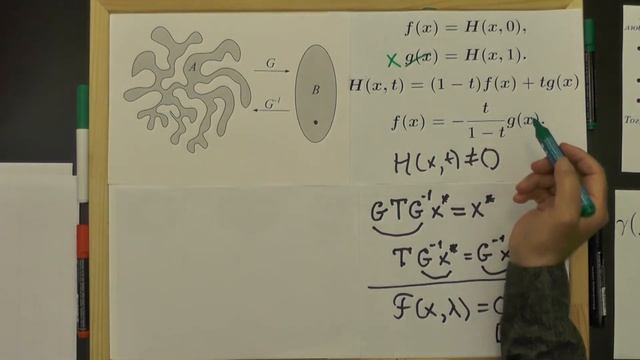 A
G
G⁻¹
B
f(x) = H(x, 0),
x g(x) = H(x, 1).
H(x, t) = (1 − t)f(x) + tg(x)
f(x) = − t/(1 − t) g(x).
H(x, t) ≠ 0
GTG⁻¹x* = x*
TG⁻¹x* = G⁻¹x
F(x, λ) = 0
γ(